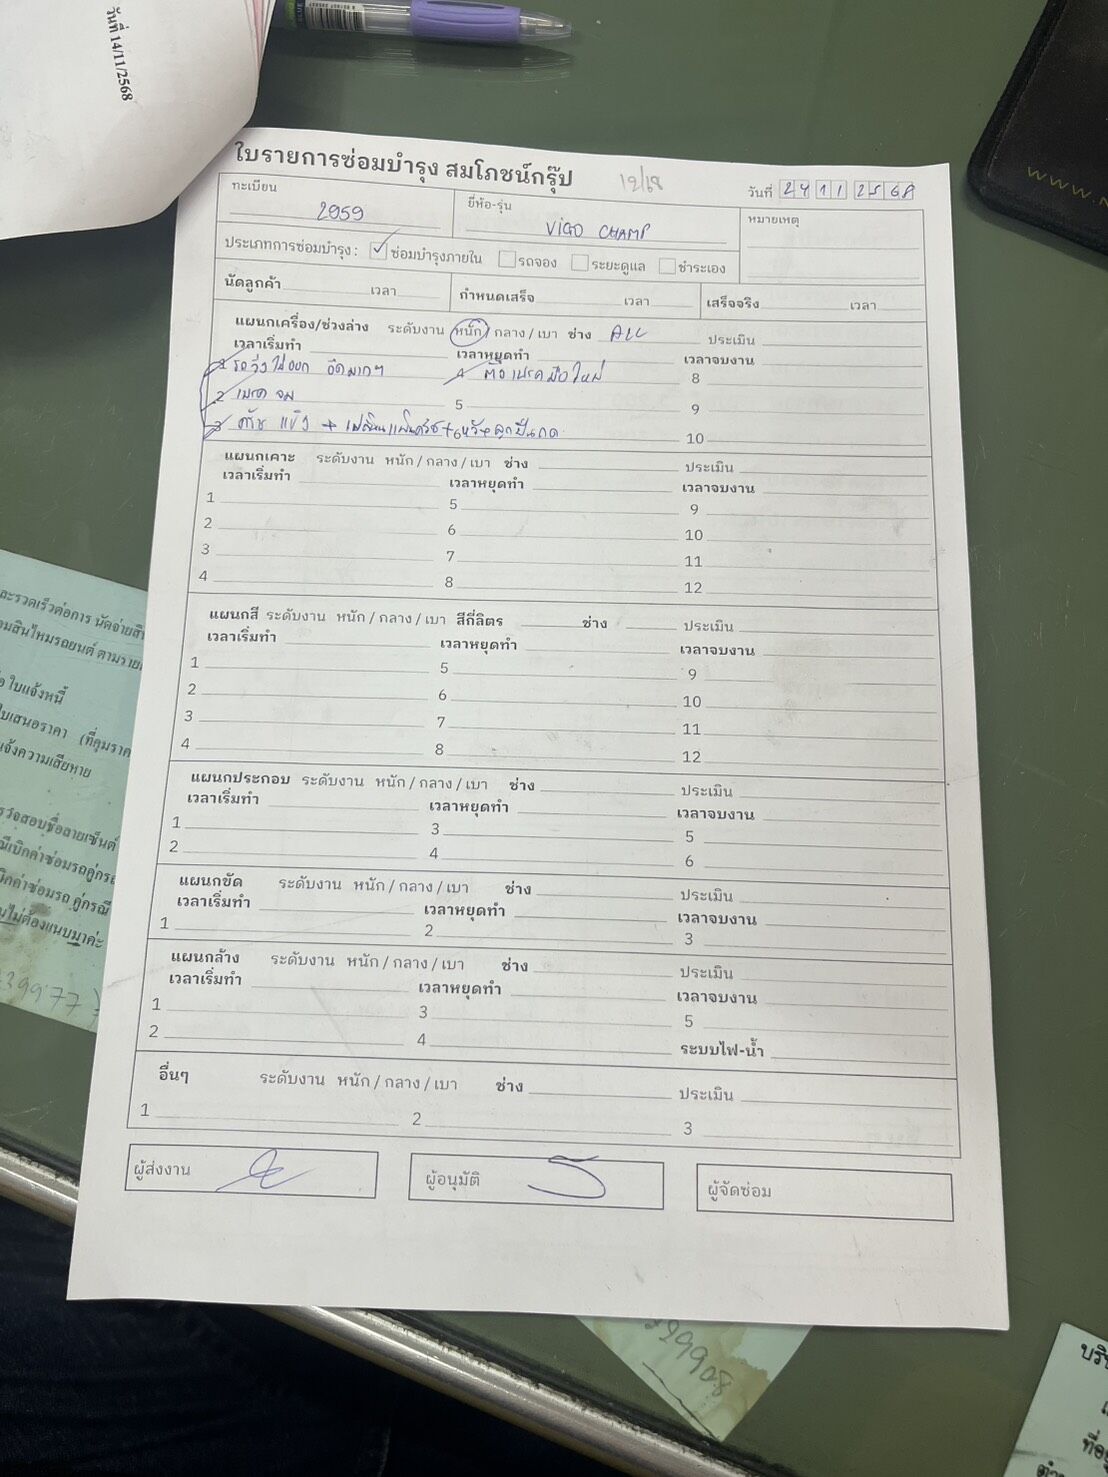 วันที่ 14/11/2568
ใบรายการซ่อมบำรุง สมโภชน์กรุ๊ป 12/68 วันที่ 24 11 2568
ทะเบียน 2959 ยี่ห้อ-รุ่น VIGO CHAMP หมายเหตุ
ประเภทการซ่อมบำรุง : ✓ ซ่อมบำรุงภายใน รถจอง ระยะดูแล ชำระเอง
นัดลูกค้า เวลา กำหนดเสร็จ เวลา เสร็จจริง เวลา
แผนกเครื่อง/ช่วงล่าง ระดับงาน หนัก / กลาง / เบา ช่าง ALL ประเมิน
เวลาเริ่มทำ เวลาหยุดทำ เวลาจบงาน
1 รถวิ่งไม่ออก อืดมากๆ 4 ตั้งเบรคมือใหม่ 8
2 เบรค จม 5 9
3 ครัช แข็ง + เปลี่ยนแผ่นครัช + 6 หวี + ลูกปืนกด 10
แผนกเคาะ ระดับงาน หนัก / กลาง / เบา ช่าง ประเมิน
เวลาเริ่มทำ เวลาหยุดทำ เวลาจบงาน
1 5 9
2 6 10
3 7 11
4 8 12
แผนกสี ระดับงาน หนัก / กลาง / เบา สีกี่ลิตร ช่าง ประเมิน
เวลาเริ่มทำ เวลาหยุดทำ เวลาจบงาน
1 5 9
2 6 10
3 7 11
4 8 12
แผนกประกอบ ระดับงาน หนัก / กลาง / เบา ช่าง ประเมิน
เวลาเริ่มทำ เวลาหยุดทำ เวลาจบงาน
1 3 5
2 4 6
แผนกขัด ระดับงาน หนัก / กลาง / เบา ช่าง ประเมิน
เวลาเริ่มทำ เวลาหยุดทำ เวลาจบงาน
1 2 3
แผนกล้าง ระดับงาน หนัก / กลาง / เบา ช่าง ประเมิน
เวลาเริ่มทำ เวลาหยุดทำ เวลาจบงาน
1 3 5
2 4 ระบบไฟ-น้ำ
อื่นๆ ระดับงาน หนัก / กลาง / เบา ช่าง ประเมิน
1 2 3
ผู้ส่งงาน ผู้อนุมัติ ผู้จัดซ่อม
ละรวดเร็วต่อการ นัดจ่ายสิ
มสินไหมรถยนต์ ตามราย
อ ใบแจ้งหนี้
ใบเสนอราคา (ที่คุมราค
แจ้งความเสียหาย
รวจสอบชื่อลายเซ็นต์
ณีเบิกค่าซ่อมรถคู่กรณ
บิกค่าซ่อมรถ คู่กรณี
ไม่ต้องแนบมาค่ะ
39977
99908
บริษ
ที่อยู่